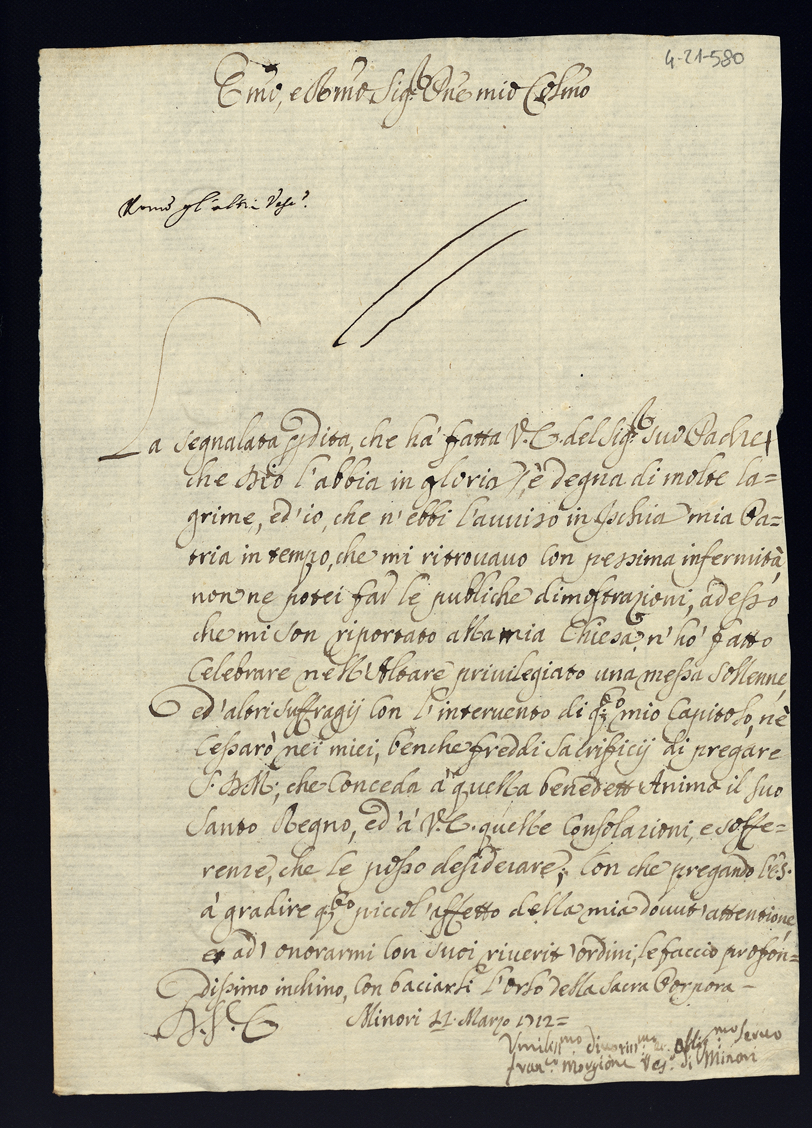 4-21-580
Emo, e Rmo Sigre Pne mio Colmo
gl'altri Vesc.i
La segnalata pdita, che há fatta V.E. del Sigre suo Padre (
che Dio l'abbia in gloria ) è degna di molte la=
grime, ed'io, che n'ebbi l'auuiso in Ischia mia Pa=
tria in tempo, che mi ritrouauo con pessima infermità,
non ne potei far le publiche dimostrazioni, adesso
che mi son riportato alla mia Chiesa, n'hó fatto
celebrare nell'Altare priuilegiato una messa sollenne,
ed'altri suffragij con l'interuento di qsto mio Capitolo, nè
cessarò nei miei, benche freddi sacrificij di pregare
S.D.M., che conceda à quella benedett'Anima il suo
santo Regno, ed'à V.E. quelle consolazioni, e soffe=
renze, che le posso desiderare; con che pregando l'E.S.
à gradire qsto piccol'affetto della mia douut'attentione
et ad'onorarmi con suoi riueriti ordini, le faccio profon=
dissimo inchino, con baciarli l'orlo della Sacra Porpora –
D.V.E. Minori 11 Marzo 1712=
Vmilissmo diuotissmo et obligmo seruo
Franco Morgione Vesco di Minori